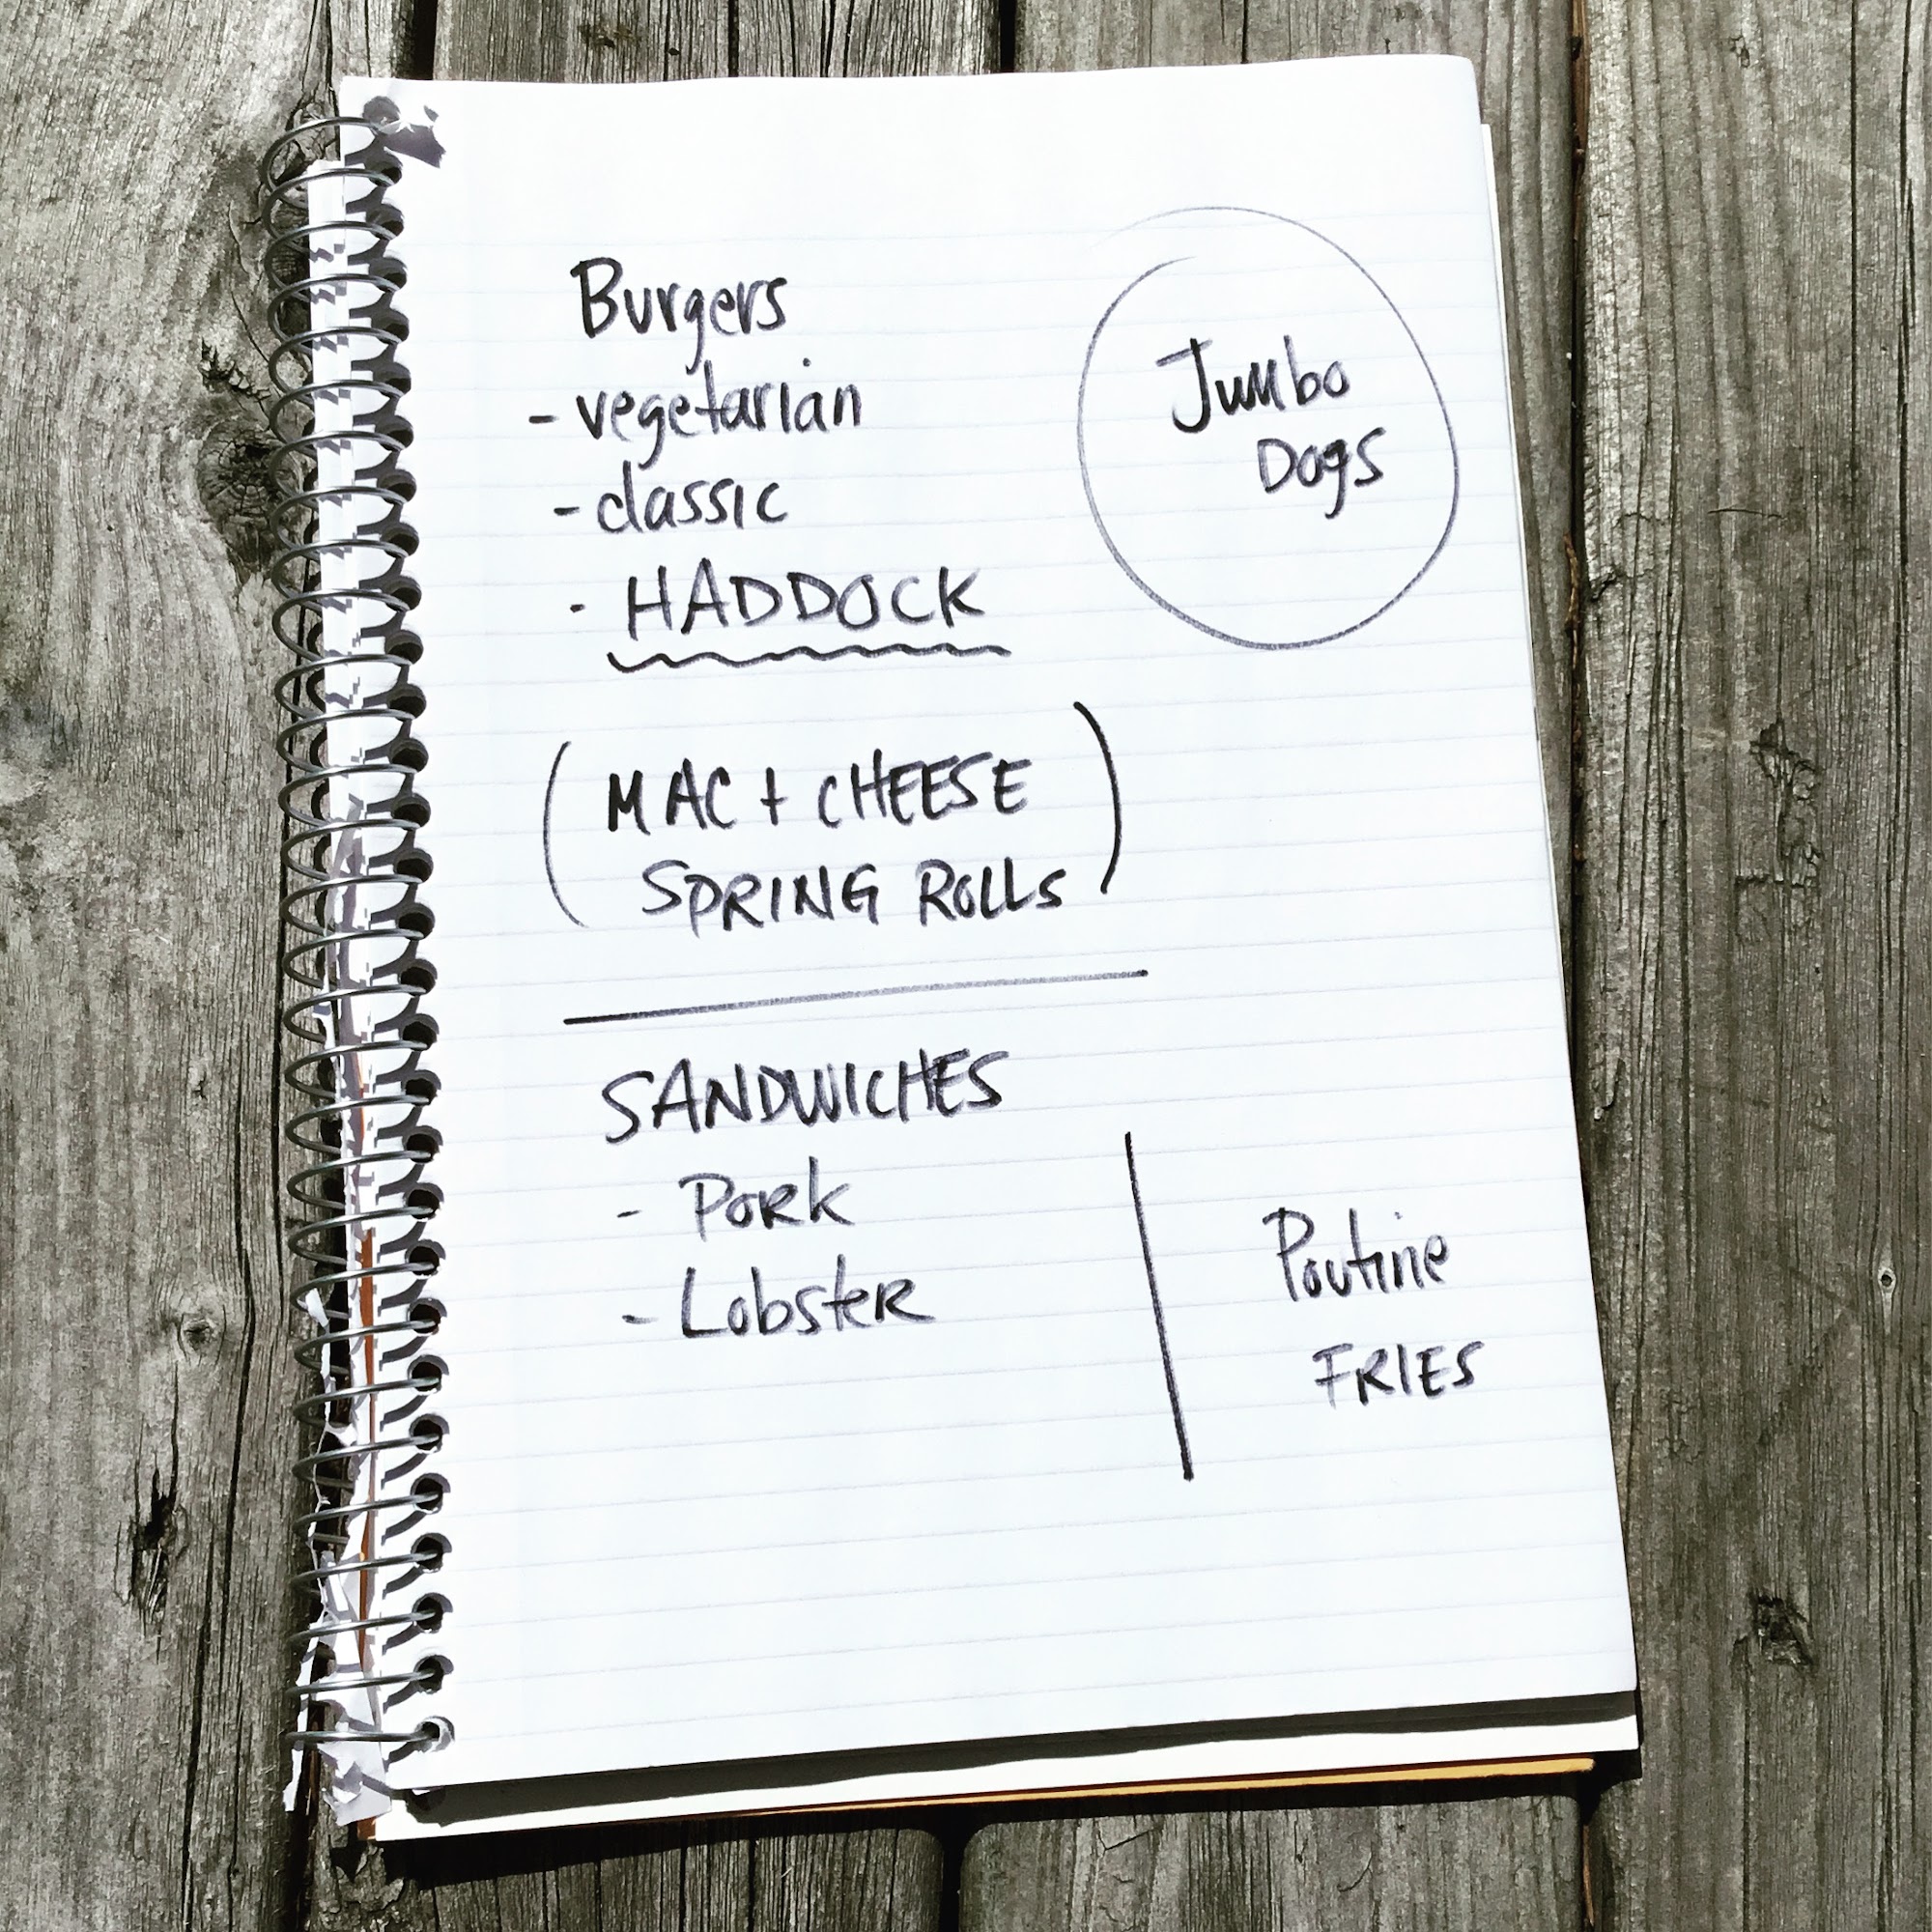 Burgers
- vegetarian
- classic
- HADDOCK
Jumbo
Dogs
(MAC + CHEESE
SPRING ROLLS)
SANDWICHES
- PORK
- LobsteR
Poutine
FRIES